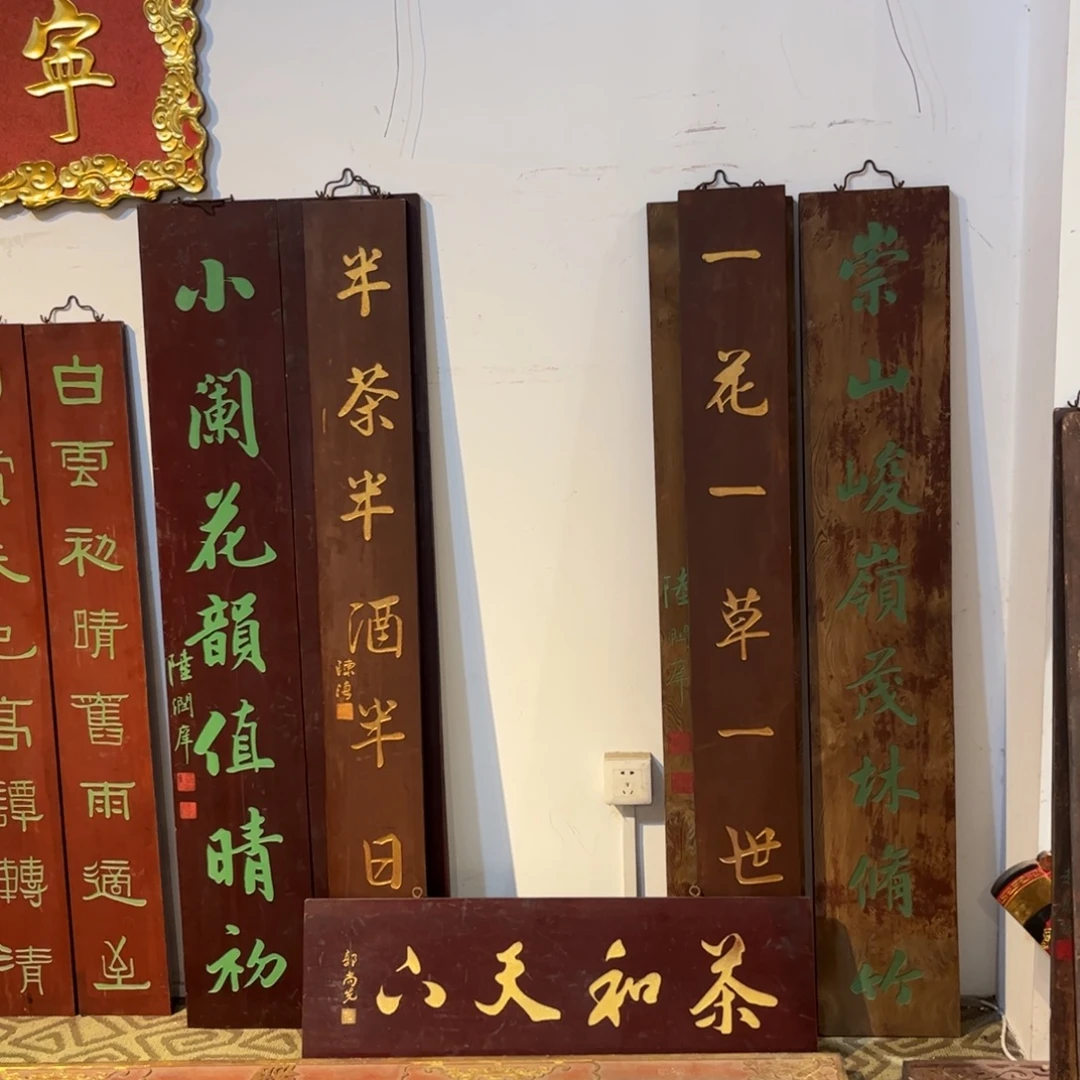 寧
賞未已高譚轉清
白雲初晴舊雨適至
小闌花韻值晴初
陸潤庠
半茶半酒半日
陳淳
陸潤庠
一花一草一世
崇山峻嶺茂林脩竹
茶和天下
郭尚先